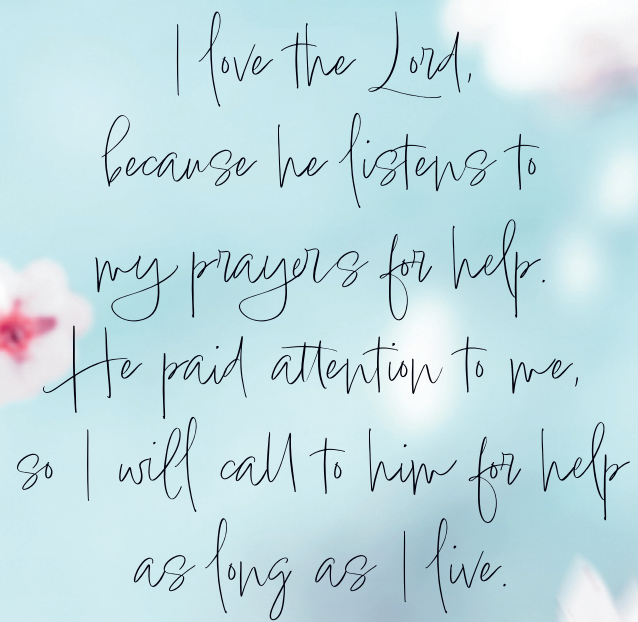 I love the Lord,
because he listens to
my prayers for help.
He paid attention to me,
so I will call to him for help
as long as I live.